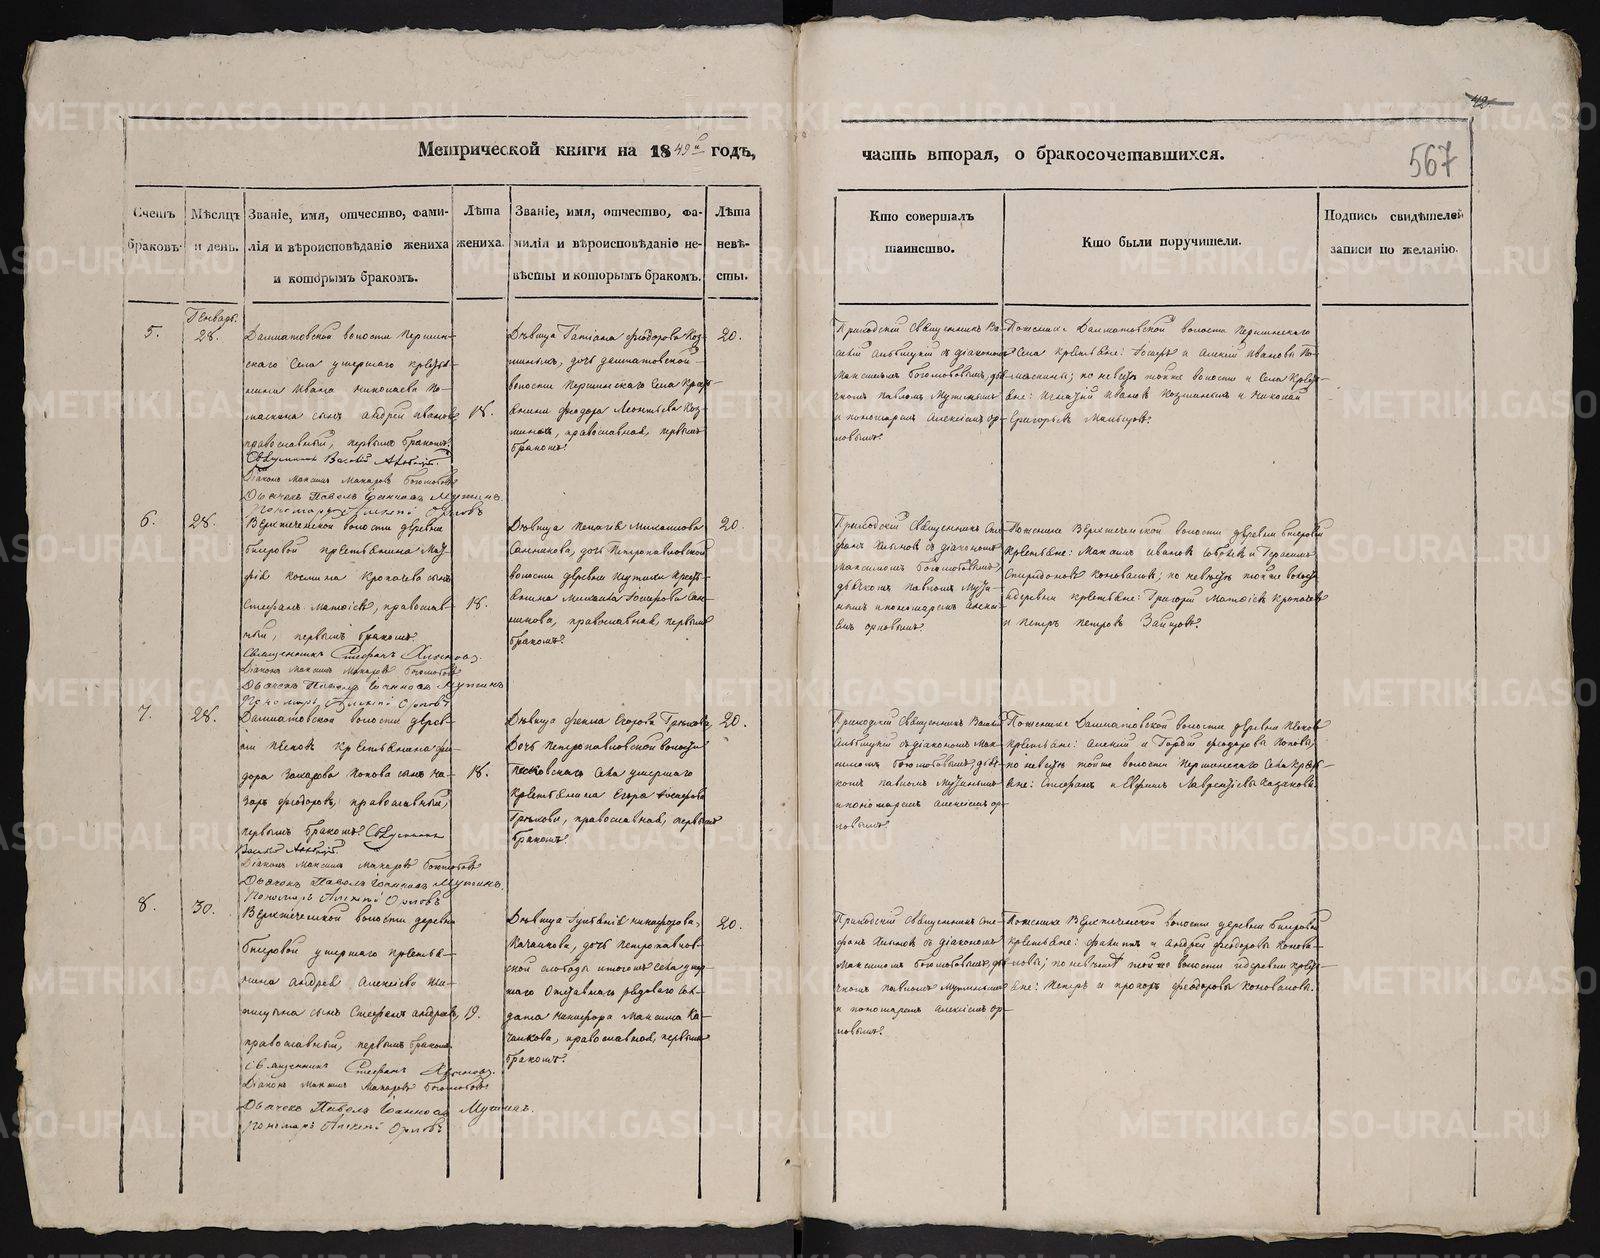 Метрической книги на 1849й годъ,
часть вторая, о бракосочетавшихся.
567
Счетъ браковъ.
Мѣсяцъ и день.
Званіе, имя, отчество, фами-
лія и вѣроисповѣданіе жениха
и которымъ бракомъ.
Лѣта
жениха.
Званіе, имя, отчество, фа-
милія и вѣроисповѣданіе не-
вѣсты и которымъ бракомъ.
Лѣта
невѣ-
сты.
Кто совершалъ
таинство.
Кто были поручители.
Подпись свидѣтелей
записи по желанію.
5.
Генварь.
28.
Далматовской волости Першин-
скаго Села умершаго крестья-
нина Ивана Николаева По-
маскина сынъ Андрей Ивановъ,
православный, первымъ бракомъ.
Священникъ Василій
Діаконъ Максимъ Макаровъ Богомоловъ
Дьячекъ Павелъ Іоанновъ Мутинъ.
Пономарь Алексій Орловъ
18.
Дѣвица Татіана Феодорова Коз-
миныхъ, дочь Далматовской
волости Першинскаго Села Кресть-
янина Феодора Леонтьева Коз-
миныхъ, православная, первымъ
бракомъ.
20.
Приходскій Священникъ Ва-
силій съ діакономъ
Максимомъ Богомоловымъ, дья-
чкомъ Павломъ Мутинымъ
и пономаремъ Алексіемъ Ор-
ловымъ.
По женихѣ Далматовской волости Першинскаго
Села крестьяне: и Алексій Ивановы По-
маскины; по невѣстѣ тойже волости и Села Кресть-
яне: Игнатій Ивановъ Козминыхъ и Николай
Григорьевъ Мальцовъ.
6.
28.
Верхтеченской волости деревни
Бисеровой крестьянина Мат-
фія Космина Кропачева сынъ
Стефанъ Матфіевъ, православ-
ный, первымъ бракомъ
Священникъ Стефанъ Хлыновъ.
Діаконъ Максимъ Макаровъ Богомоловъ
Дьячекъ Павелъ Іоанновъ Мутинъ
Пономарь Алексій Орловъ
18.
Дѣвица Пелагія Михаилова
Санникова, дочь Петропавловской
волости деревни Крест-
янина Михаила Сан-
никова, православная, первымъ
бракомъ.
20.
Приходскій Священникъ Сте-
фанъ Хлыновъ съ діакономъ
Максимомъ Богомоловымъ,
дьячкомъ Павломъ Мути-
нымъ и пономаремъ Алексі-
емъ Орловымъ.
По женихѣ Верхтеченской волости деревни Бисеровой
Крестьяне: Максимъ Ивановъ и Герасимъ
Спиридоновъ Коноваловъ; по невѣстѣ тойже волости
и деревни крестьяне: Григорій Матфіевъ Кропачевъ
и Петръ Петровъ Зайцовъ.
7.
28.
Далматовской волости дерев-
ни Пѣсковъ Крестьянина Фе-
дора Захарова Попова сынъ На-
заръ Феодоровъ, православный,
первымъ бракомъ. Священникъ
Василій
Діаконъ Максимъ Макаровъ Богомоловъ
Дьячекъ Павелъ Іоанновъ Мутинъ.
Пономарь Алексій Орловъ
18.
Дѣвица Фекла Егорова Грѣхова,
Дочь Петропавловской волости
Песковскаго Села умершаго
Крестьянина Егора
Грѣхова, православная, первымъ
бракомъ.
20.
Приходскій Священникъ Василій
съ діакономъ Мак-
симомъ Богомоловымъ, дьяч-
комъ Павломъ Мутинымъ
и пономаремъ Алексіемъ Ор-
ловымъ.
По женихѣ Далматовской волости деревни Пѣсковъ
крестьяне: Алексій и Гордій Феодоровы Поповы;
по невѣстѣ тойже волости Першинскаго Села Кресть-
яне: Стефанъ и Лаврентіевы Казаковы.
8.
30.
Верхтеченской волости деревни
Бисеровой умершаго крестья-
нина Андрея Алексіева
сынъ Стефанъ Андреевъ,
православный, первымъ бракомъ.
Священникъ Стефанъ Хлыновъ.
Діаконъ Максимъ Макаровъ Богомоловъ
Дьячекъ Павелъ Іоанновъ Мутинъ.
Пономарь Алексій Орловъ
19.
Дѣвица Никифорова,
Качалкова, дочь Петропавлов-
ской слободы Села умер-
шаго Отставнаго рядоваго Сол-
дата Никифора Максима Ка-
чалкова, православная, первымъ
бракомъ.
20.
Приходскій Священникъ Сте-
фанъ Хлыновъ съ діакономъ
Максимомъ Богомоловымъ, дья-
чкомъ Павломъ Мутинымъ
и пономаремъ Алексіемъ Ор-
ловымъ.
По женихѣ Верхтеченской волости деревни Бисеровой
крестьяне: Филиппъ и Андрей Феодоровы Конова-
ловы; по невѣстѣ тойже волости и деревни кресть-
яне: Петръ и Прохоръ Феодоровы Коноваловы.
METRIKI.GASO-URAL.RU